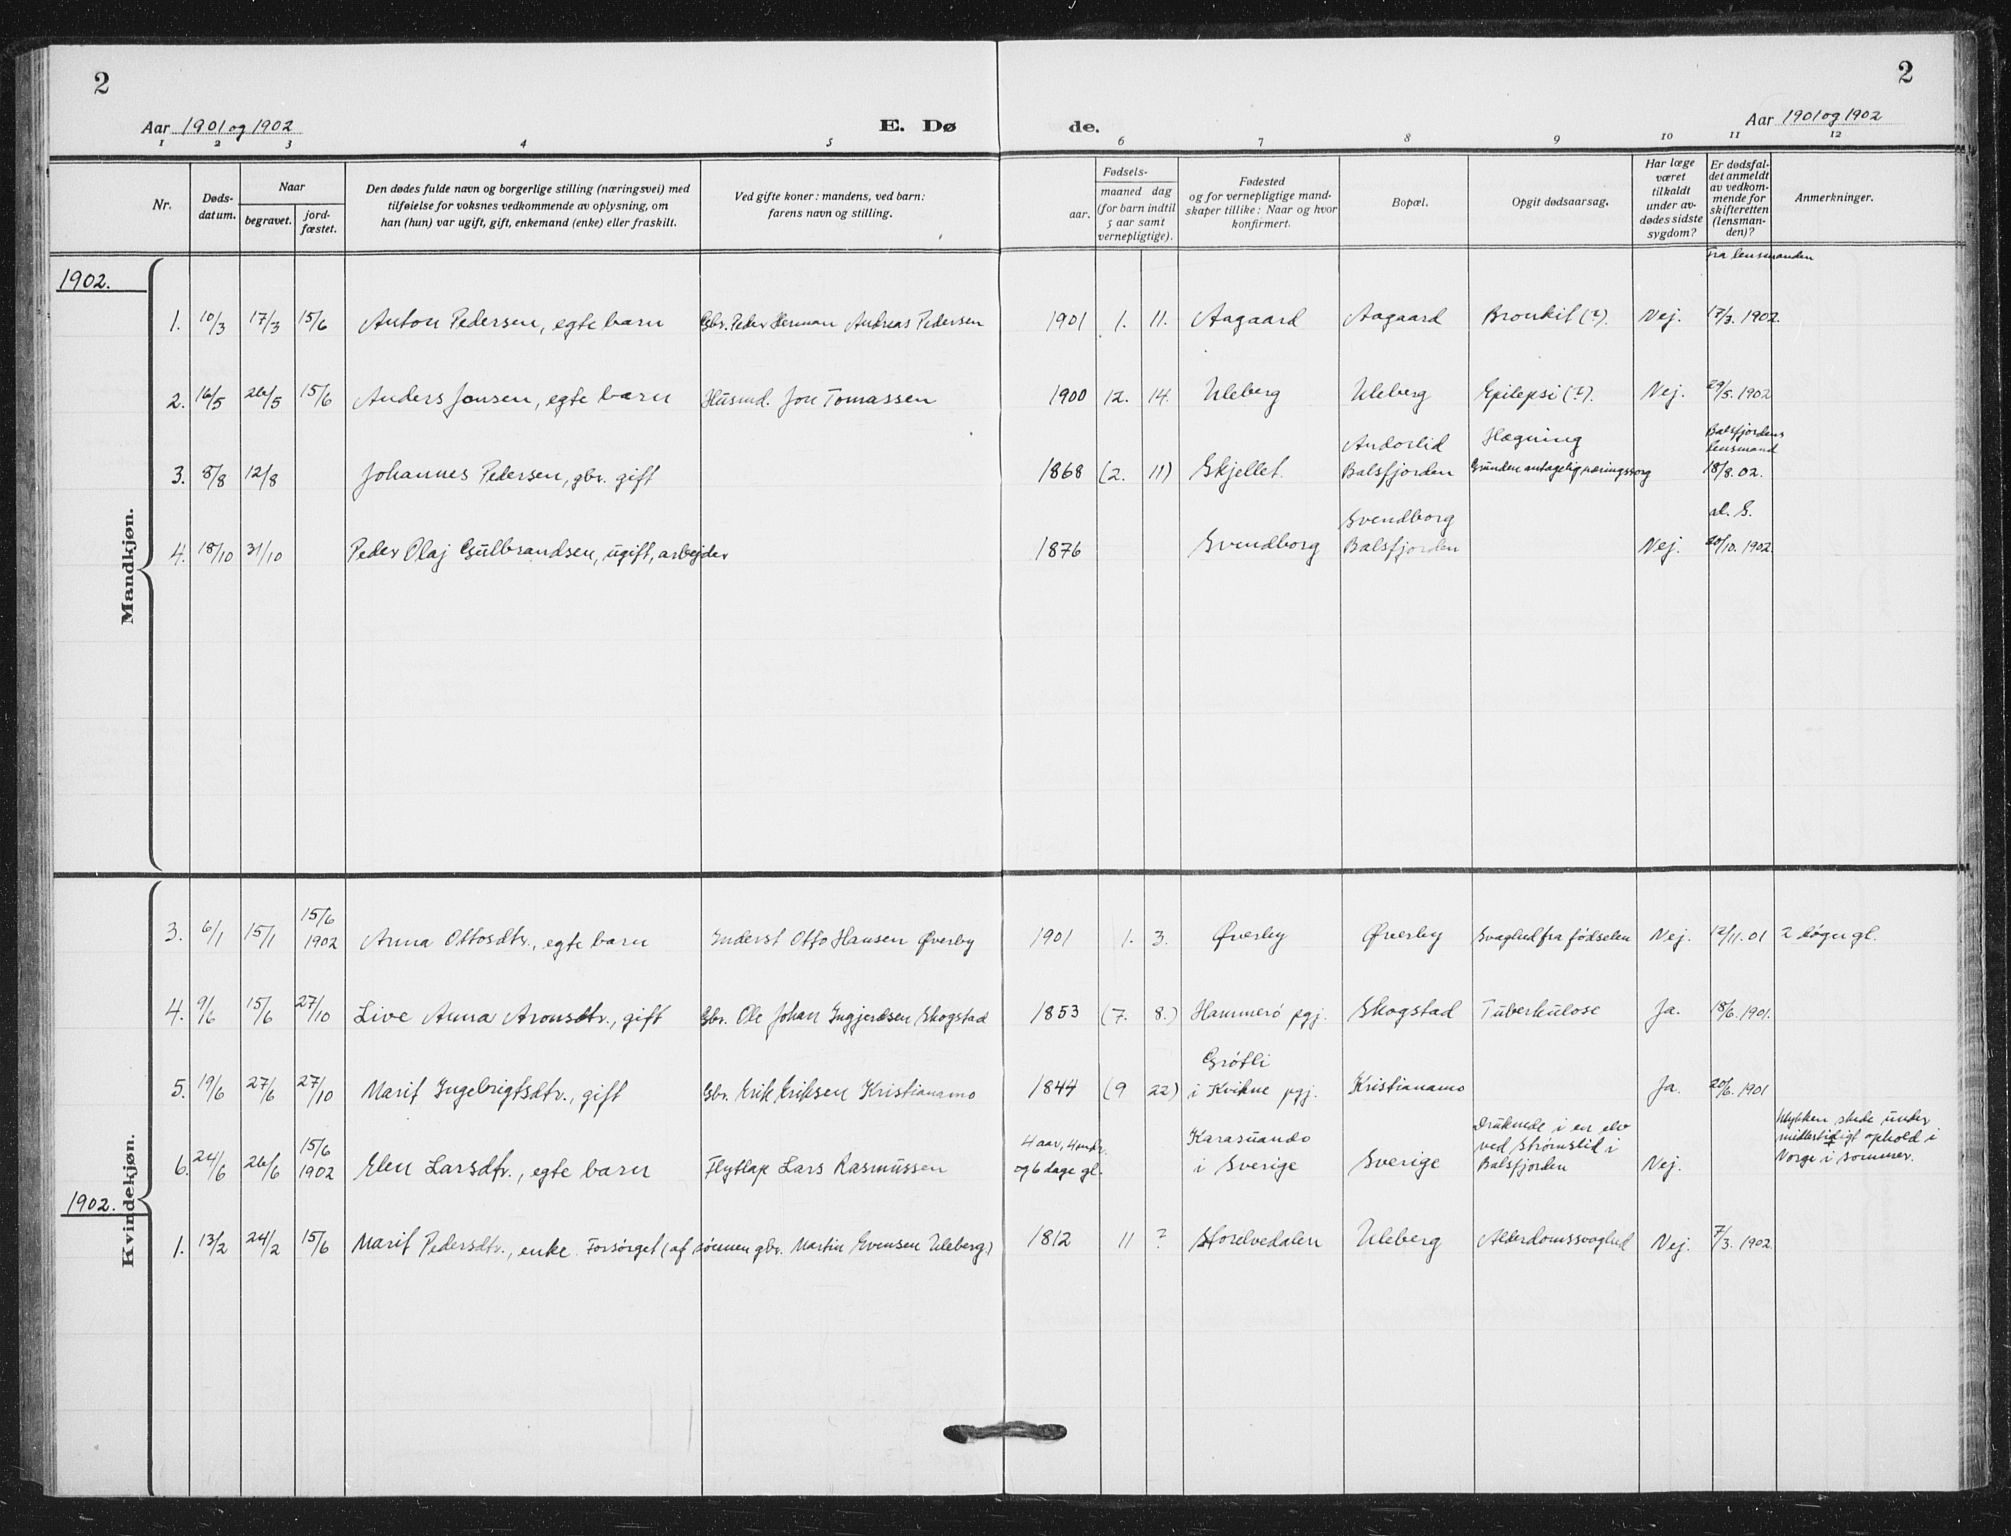 2
2
Aar 1901 og 1902
E. Dø
de.
Aar 1901 og 1902
1 2 3 4 5 6 7 8 9 10 11 12
Nr.
Døds-
datum.
Naar
begravet.
jord-
fæstet.
Den dødes fulde navn og borgerlige stilling (næringsvei) med
tilføielse for voksnes vedkommende av oplysning, om
han (hun) var ugift, gift, enkemand (enke) eller fraskilt.
Ved gifte koner: mandens, ved barn:
farens navn og stilling.
Fødsels-
aar.
maaned dag
(for barn indtil
5 aar samt
vernepligtige).
Fødested
og for vernepligtige mand-
skaper tillike: Naar og hvor
konfirmert.
Bopæl.
Opgit dødsaarsag.
Har læge
været
tilkaldt
under av-
dødes sidste
sygdom?
Er dødsfal-
det anmeldt
av vedkom-
mende for
skifteretten
(lensman-
den)?
Anmerkninger.
Mandkjøn.
1902.
Fra lensmanden
1. 10/3 17/3 15/6 Anton Pedersen, egte barn Gbr. Peder Herman Andreas Pedersen 1901 1. 11. Aagaard Aagaard Bronkit (?). Nej. 17/3. 1902.
2. 16/5 26/5 15/6 Anders Jonsen, egte barn Husmd. Jon Tomassen 1900 12. 14. Uleberg Uleberg Epilepsi (?). Nej. 29/5. 1902
Andorlid Hægning Balsfjordens
lensmand
3. 8/8 12/8 Johannes Pedersen, gbr. gift 1868 (2. 11) Skjellet. Balsfjorden Grunden antagelig næringssorg 18/8. 02.
Svendborg d. S.
4. 18/10 31/10 Peder Olaj Gulbrandsen, ugift, arbejder 1876 Svendborg Balsfjorden Nej. 20/10. 1902.
Kvindekjøn.
3. 6/1 15/1 15/6 1902 Anna Ottosdtr., egte barn Inderst Otto Hansen Øverby 1901 1. 3. Øverby Øverby Svaghed fra fødselen Nej. 12/11. 01 2 døgn gl.
4. 9/6 15/6 27/10 Live Anna Aronsdtr., gift Gbr. Ole Johan Ingjerdsen Skogstad 1853 (7. 8.) Hammerø pgj. Skogstad Tuberkulose Ja. 18/6. 1901.
Grøtli
5. 19/6 27/6 27/10 Marit Ingebrigtsdtr., gift Gbr. Erik Eriksen Kristianamo 1844 (9 22) i Kvikne pgj. Kristianamo Ja. 20/6. 1901
6. 24/6 26/6 15/6 1902 Elen Larsdtr., egte barn Flytlap Lars Rasmussen 4 aar, 4 mndr.
og 6 dage gl. Karasuando
i Sverige Sverige Druknede i en elv
ved Strømslid i
Balsfjorden Nej. Ulykken skede under
midlertidigt ophold i
Norge i sommer.
1902.
1. 13/2 24/2 15/6 Marit Pedersdtr., enke. Forsørget (af sønnen gbr. Martin Evensen Uleberg) 1812 11 ? Storelvedalen Uleberg Alderdomssvaghed Nej. 7/3. 1902.